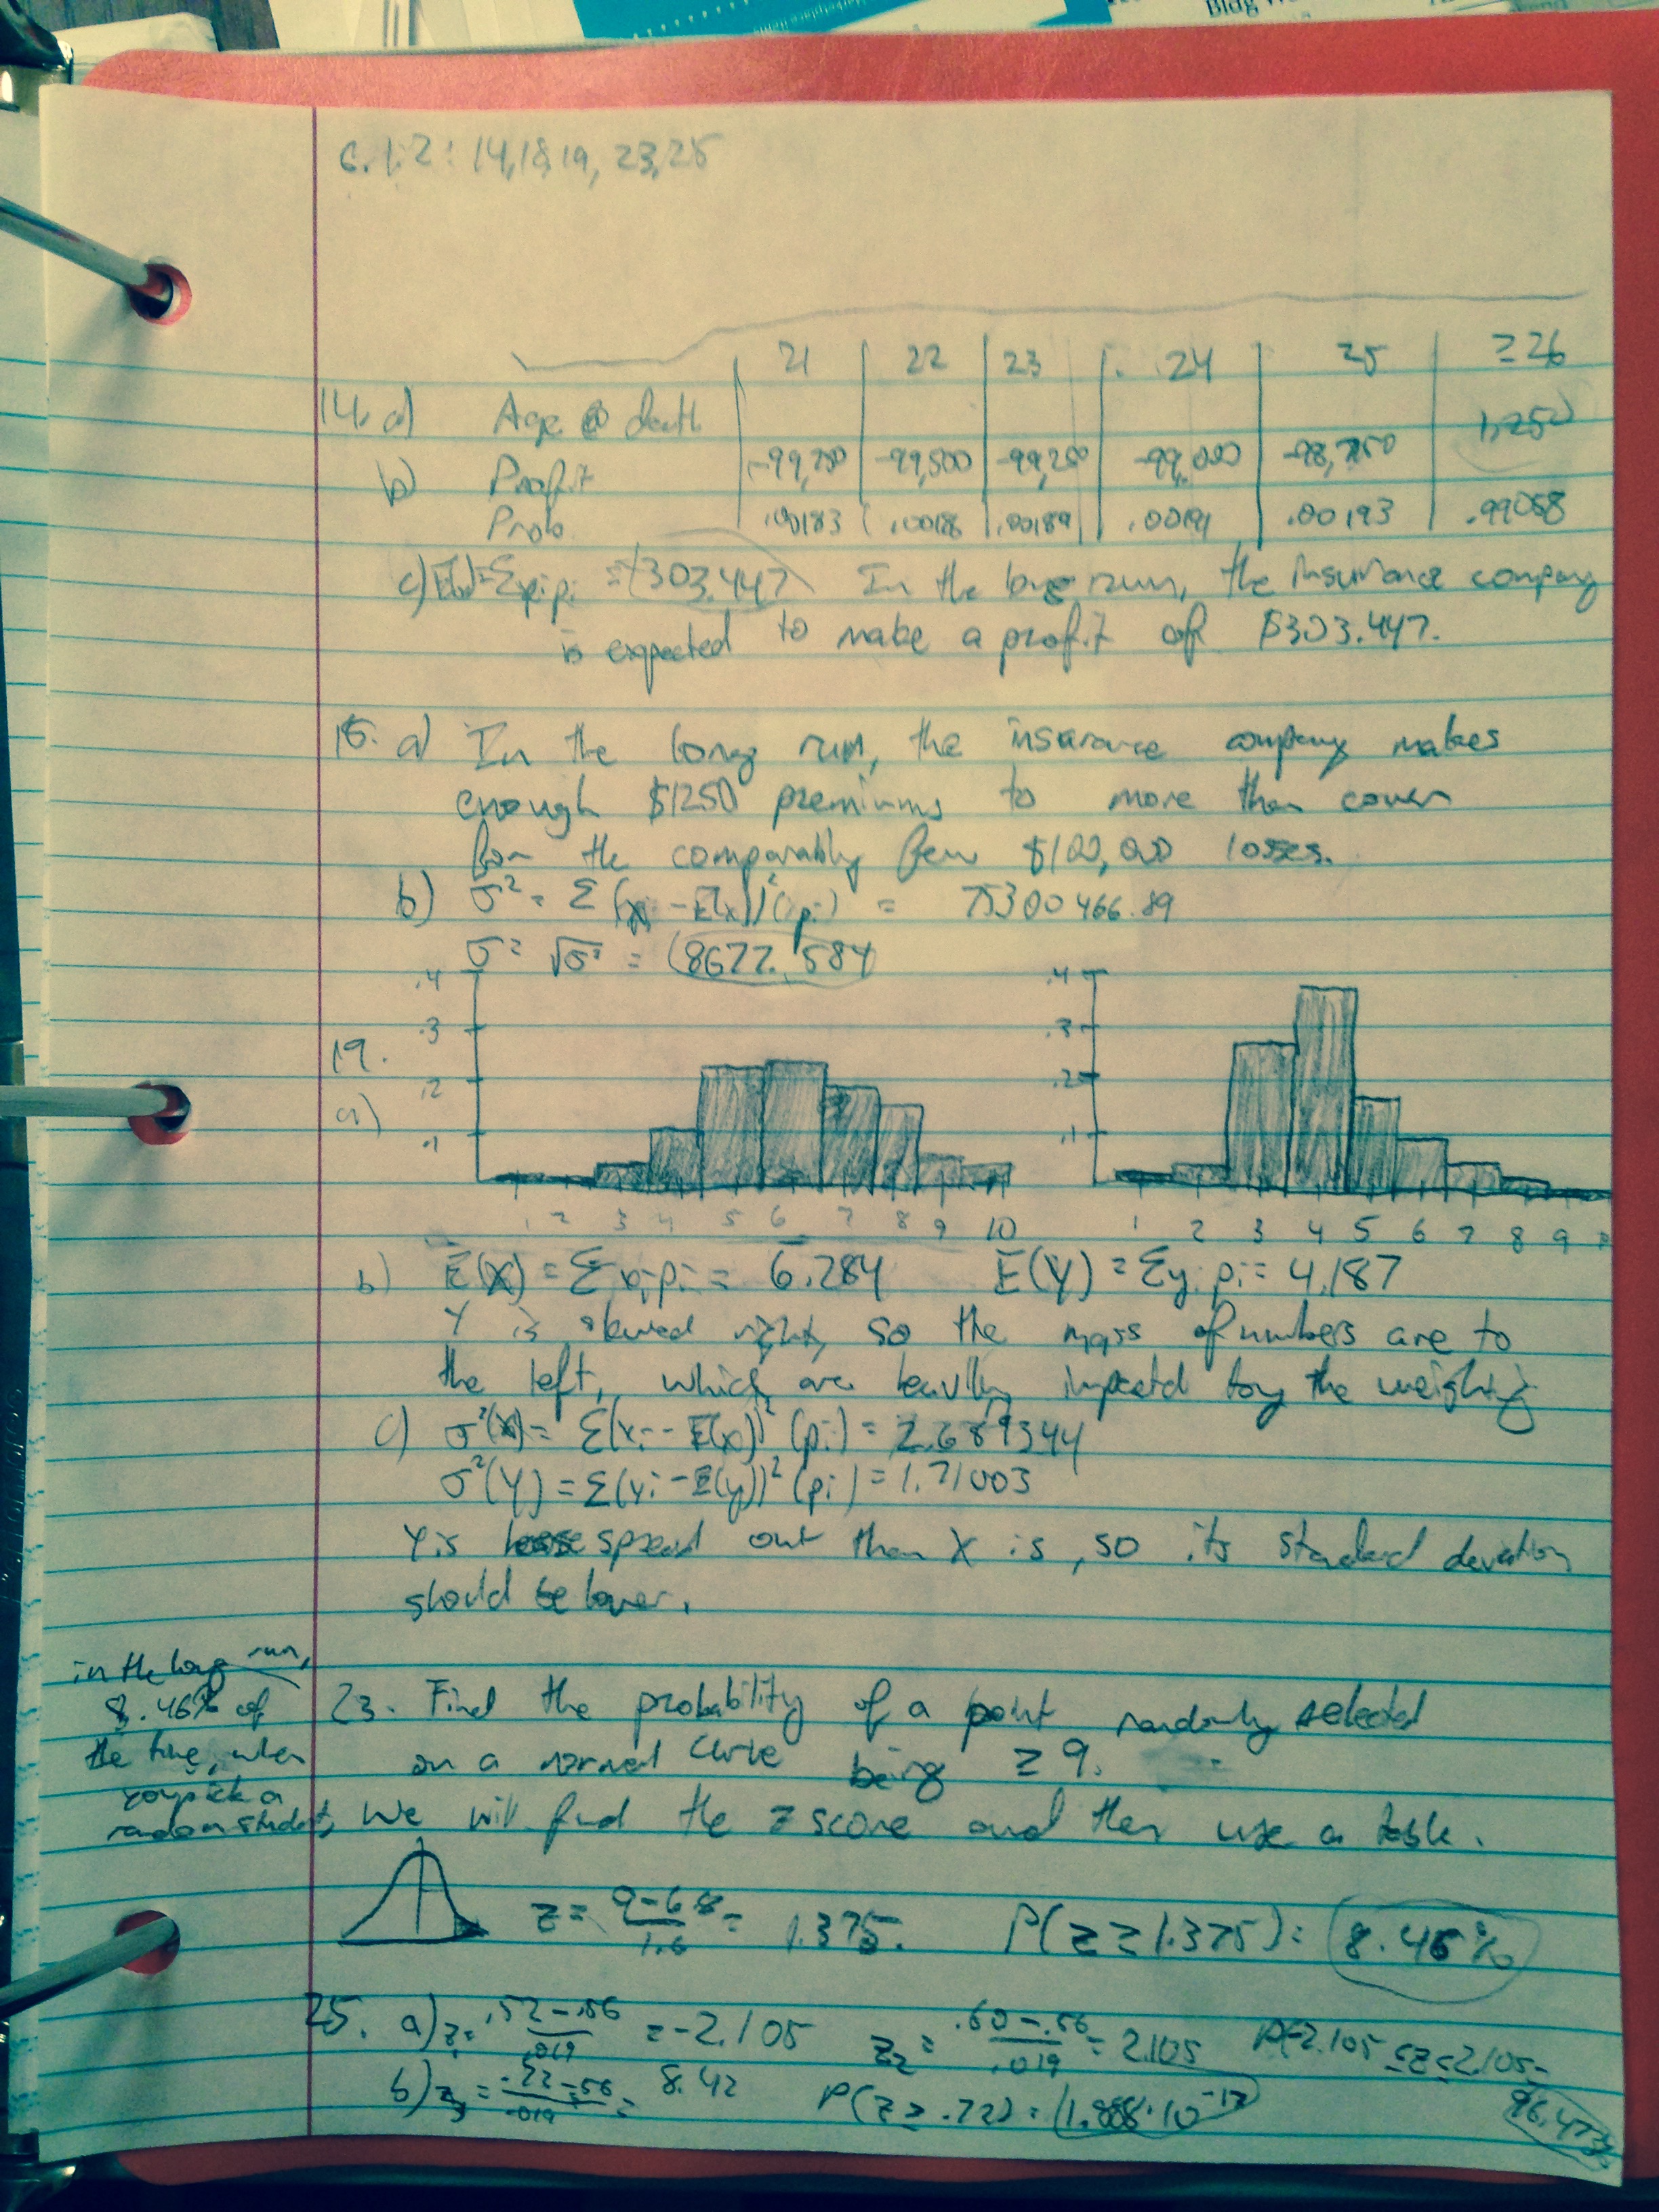 Bldg
6.1.2: 14, 18, 19, 23, 25
21 22 23 24 25 ≥26
14. a) Age @ death
b) Profit -99,750 -99,500 -99,250 -99,000 -98,750 1,250
Prob. .00183 .00186 .00189 .00191 .00193 .99058
c) E(x)=Σxipi = 303.447 In the long run, the insurance company
is expected to make a profit of $303.447.
18. a) In the long run, the insurance company makes
enough $1250 premiums to more than cover
for the comparably few $100,000 losses.
b) σ² = Σ(xi - E(x))²(pi) =
σ = √σ² =
.4 .4
.3 .3
19.
.2 .2
a)
.1 .1
1 2 3 4 5 6 7 8 9 10 1 2 3 4 5 6 7 8 9
b) E(X) = Σxipi = 6.284 E(Y) = Σyipi = 4.187
Y is skewed right, so the mass of numbers are to
the left, which are heavily impacted by the weighing
c) σ²(X) = Σ(xi - E(x))²(pi) = 2.689344
σ²(Y) = Σ(yi - E(y))²(pi) = 1.71003
Y is less spread out than X is, so its standard deviation
should be lower.
in the long run,
8.46% of
the time, when
you pick a
random student,
23. Find the probability of a point randomly selected
on a normal curve being ≥9.
We will find the z score and then use a table.
z = 9-6.8/1.6 = 1.375. P(z ≥ 1.375) = 8.46%
25. a) z₁ = .52-.56/.019 = -2.105 z₂ = .60-.56/.019 = 2.105 P(-2.105 ≤ z ≤ 2.105) =
96.473%
b) z = .72-.56/.019 = 8.42 P(z ≥ .72) =